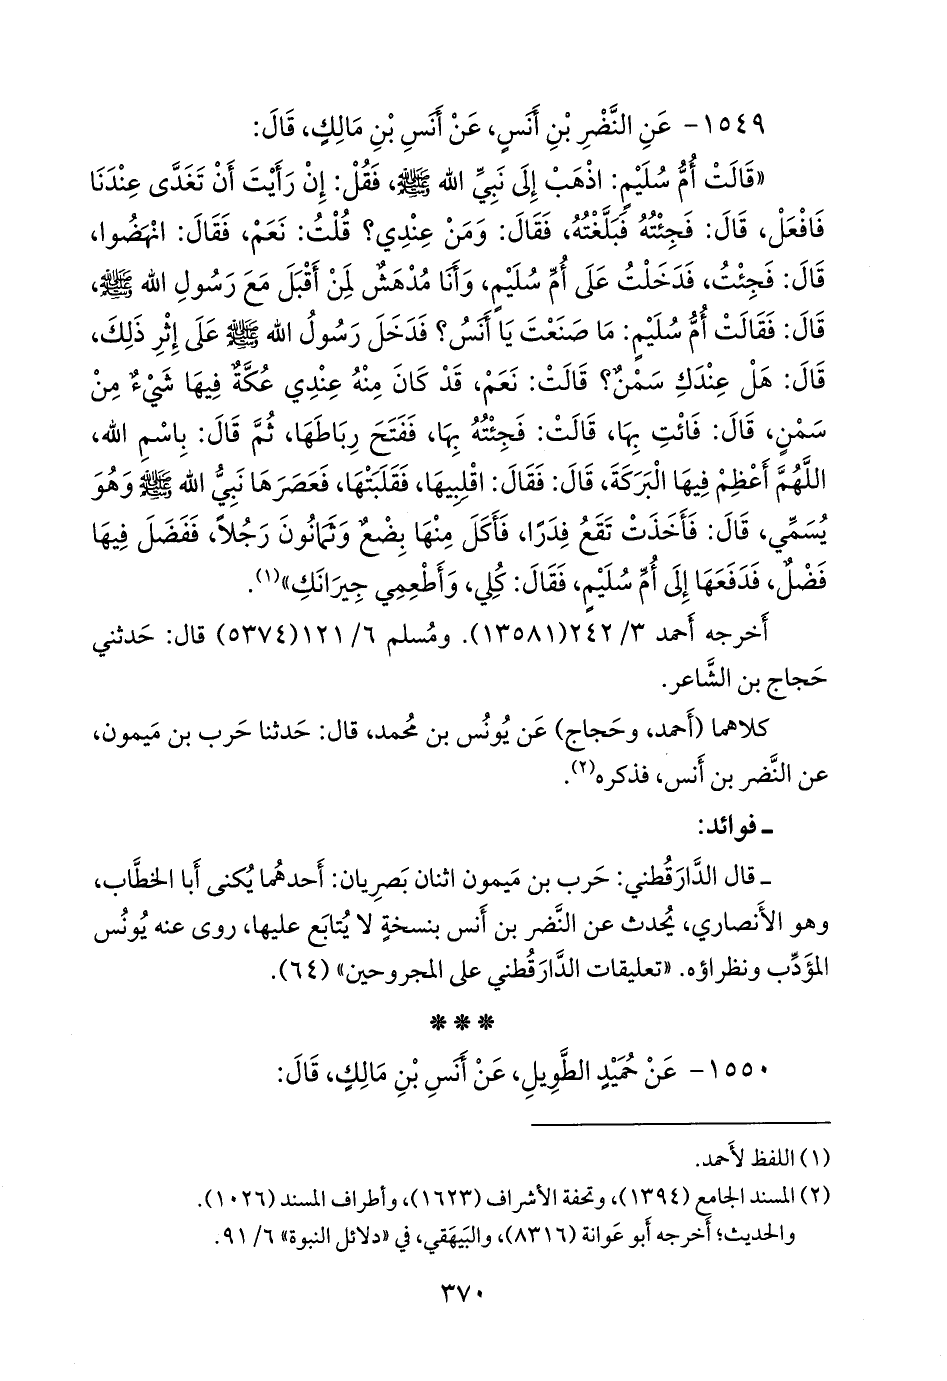 ١٥٤٩- عَنِ النَّضْرِ بْنِ أَنَسٍ، عَنْ أَنَسِ بْنِ مَالِكٍ، قَالَ:
«قَالَتْ أُمُّ سُلَيْمٍ: اذْهَبْ إِلَى نَبِيِّ الله ﷺ، فَقُلْ: إِنْ رَأَيْتَ أَنْ تَغَدَّى عِنْدَنَا
فَافْعَلْ، قَالَ: فَجِئْتُهُ فَبَلَّغْتُهُ، فَقَالَ: وَمَنْ عِنْدِي؟ قُلْتُ: نَعَمْ، فَقَالَ: انْهَضُوا،
قَالَ: فَجِئْتُ، فَدَخَلْتُ عَلَى أُمِّ سُلَيْمٍ، وَأَنَا مُدْهَشٌ لِمَنْ أَقْبَلَ مَعَ رَسُولِ الله ﷺ،
قَالَ: فَقَالَتْ أُمُّ سُلَيْمٍ: مَا صَنَعْتَ يَا أَنَسُ؟ فَدَخَلَ رَسُولُ الله ﷺ عَلَى إِثْرِ ذَلِكَ،
قَالَ: هَلْ عِنْدَكِ سَمْنٌ؟ قَالَتْ: نَعَمْ، قَدْ كَانَ مِنْهُ عِنْدِي عُكَّةٌ فِيهَا شَيْءٌ مِنْ
سَمْنٍ، قَالَ: فَائْتِ بِهَا، قَالَتْ: فَجِئْتُهُ بِهَا، فَفَتَحَ رِبَاطَهَا، ثُمَّ قَالَ: بِاسْمِ الله،
اللَّهُمَّ أَعْظِمْ فِيهَا الْبَرَكَةَ، قَالَ: فَقَالَ: اقْلِبِيهَا، فَقَلَبَتْهَا، فَعَصَرَهَا نَبِيُّ الله ﷺ وَهُوَ
يُسَمِّي، قَالَ: فَأَخَذَتْ تَقَعُ قِدَرًا، فَأَكَلَ مِنْهَا بِضْعٌ وَثَمَانُونَ رَجُلاً، فَفَضَلَ فِيهَا
فَضْلٌ، فَدَفَعَهَا إِلَى أُمِّ سُلَيْمٍ، فَقَالَ: كُلِي، وَأَطْعِمِي جِيرَانَكِ»(١).
أخرجه أَحمد ٣/ ٢٤٢(١٣٥٨١). ومُسلم ٦/ ١٢١(٥٣٧٤) قال: حَدثني
حَجاج بن الشَّاعر.
كلاهما (أَحمد، وحَجاج) عَن يُونُس بن مُحمد، قال: حَدثنا حَرب بن مَيمون،
عن النَّضر بن أَنس، فذكره(٢).
ـ فوائد:
ـ قال الدَّارَقُطني: حَرب بن مَيمون اثنان بَصرِيان: أَحدهُما يُكنى أَبا الخطَّاب،
وهو الأَنصاري، يُحدث عن النَّضر بن أَنس بنسخةٍ لا يُتابَع عليها، روى عنه يُونُس
المؤَدِّب ونظراؤه. «تعليقات الدَّارَقُطني على المجروحين» (٦٤).
* * *
١٥٥٠- عَنْ حُمَيْدٍ الطَّوِيلِ، عَنْ أَنَسِ بْنِ مَالِكٍ، قَالَ:
(١) اللفظ لأَحمد.
(٢) المسند الجامع (١٣٩٤)، وتحفة الأشراف (١٦٢٣)، وأطراف المسند (١٠٢٦).
والحديث؛ أَخرجه أَبو عَوانة (٨٣١٦)، والبَيهَقي، في «دلائل النبوة» ٦/ ٩١.
٣٧٠